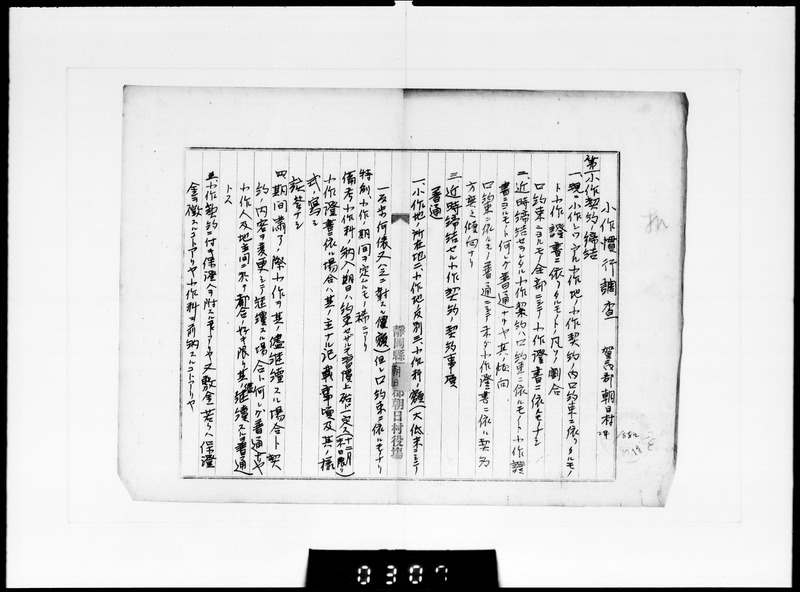 小作慣行調査 賀茂郡朝日村
第一小作契約ノ締結
一、現ニ小作シツヽアル小作地ノ小作契約ノ内口約束ニ依リタルモノ
ト小作證書ニ依リタルモノトノ凡ソノ割合
口約束ニヨルモノ全部ニシテ小作證書ニ依ルモノナシ
二、近時締結セラレタル小作契約ハ口約束ニ依ルモノト小作證
書ニヨルモノト何レガ普通ナリヤ其ノ傾向
口約束ニ依ルモノ普通ニシテ未ダ小作證書ニ依ル契約
方策ノ傾向ナリ
三、近時締結セル小作契約ノ契約事項
普通
一、小作地ノ所在地二、小作地ノ反別三、小作料ノ額(大低米ニシテ
一反歩何俵又ハ之ニ對スル價額)但シ口約束ニ依ルモノナリ
特別小作期間ヲ定ムルモノ稀ニアリ
備考小作料ノ納入ノ期日ハ約束セザルモ習慣上殆ド一定ス(十二月末日限リ)
小作證書ニ依ル場合ハ其ノ主ナル記載事項及其ノ様
式ノ寫シ
該當ナシ
四、期間滿了ノ際小作ヲ其ノ儘継續スル場合ト契
約ノ内容ヲ変更シテ継續スル場合ト何レガ普通ナリヤ
小作人及地主間ノ不都合ナキ限リ其儘継續スルヲ普通
トス
五、小作契約ニ付キ保證人ヲ附スル事アリヤ又敷金若シクハ保證
金ヲ徴スルコトアリヤ小作料ヲ前納スルコトアリヤ
靜岡縣賀茂郡朝日村役塲
0307